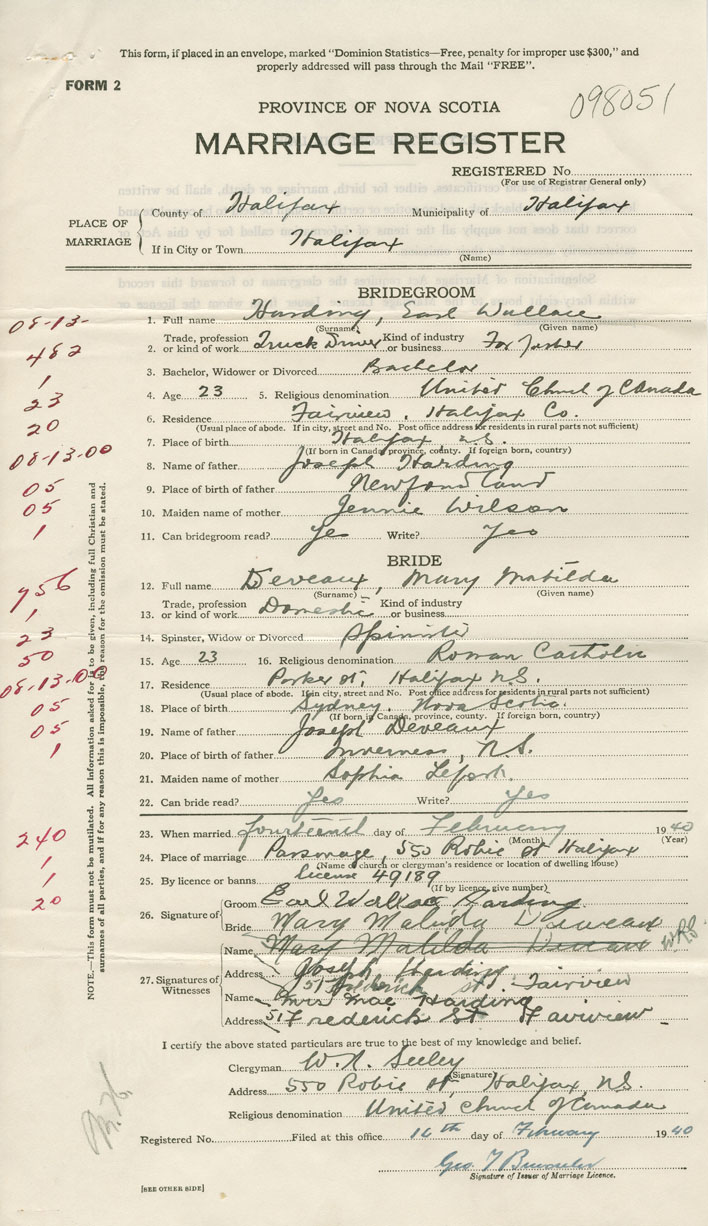 This form, if placed in an envelope, marked "Dominion Statistics—Free, penalty for improper use $300," and
properly addressed will pass through the Mail "FREE".
FORM 2
098051
PROVINCE OF NOVA SCOTIA
MARRIAGE REGISTER
REGISTERED No.
(For use of Registrar General only)
PLACE OF MARRIAGE
County of Halifax Municipality of Halifax
If in City or Town Halifax
(Name)
BRIDEGROOM
08-13-
1. Full name Harding, Earl Wallace
(Surname) (Given name)
482
2. Trade, profession or kind of work Truck Driver Kind of industry or business
1
3. Bachelor, Widower or Divorced Bachelor
23
4. Age 23 5. Religious denomination United Church of Canada
20
6. Residence Fairview, Halifax Co.
(Usual place of abode. If in city, street and No. Post office address for residents in rural parts not sufficient)
08-13-00
7. Place of birth Halifax N.S.
(If born in Canada, province, county. If foreign born, country)
8. Name of father Joseph Harding
05
9. Place of birth of father Newfoundland
05
10. Maiden name of mother Jennie Wilson
1
11. Can bridegroom read? Yes Write? Yes
BRIDE
756
12. Full name Deveaux, Mary Matilda
(Surname) (Given name)
1
13. Trade, profession or kind of work Domestic Kind of industry or business
23
14. Spinster, Widow or Divorced Spinster
50
15. Age 23 16. Religious denomination Roman Catholic
08-13-00
17. Residence Parker St, Halifax N.S.
(Usual place of abode. If in city, street and No. Post office address for residents in rural parts not sufficient)
05
18. Place of birth Sydney, Nova Scotia.
(If born in Canada, province, county. If foreign born, country)
05
19. Name of father Joseph Deveaux
1
20. Place of birth of father Inverness, N.S.
21. Maiden name of mother Sophia
22. Can bride read? Yes Write? Yes
240
23. When married fourteenth day of February 1940
(Month) (Year)
1
24. Place of marriage Parsonage, 550 Robie St Halifax
(Name of church or clergyman's residence or location of dwelling house)
1
25. By licence or banns license 49189
(If by licence, give number)
20
26. Signature of Groom Earl Wallace Harding
Bride Mary Matilda Deveaux
27. Signatures of Witnesses
Name Mary Matilda Deveaux W.R.S.
Joseph Harding
Address 51 Frederick St. Fairview
Name Mrs Mae Harding
Address 51 Frederick St Fairview
I certify the above stated particulars are true to the best of my knowledge and belief.
Clergyman W. R. Seeley
(Signature)
Address 550 Robie St, Halifax, N.S.
Religious denomination United Church of Canada
Registered No. Filed at this office 16th day of February 1940
Signature of Issuer of Marriage Licence.
[SEE OTHER SIDE]
NOTE.—This form must not be mutilated. All information asked for is to be given, including full Christian and
surnames of all parties, and if for any reason this is impossible, the reason for the omission must be stated.